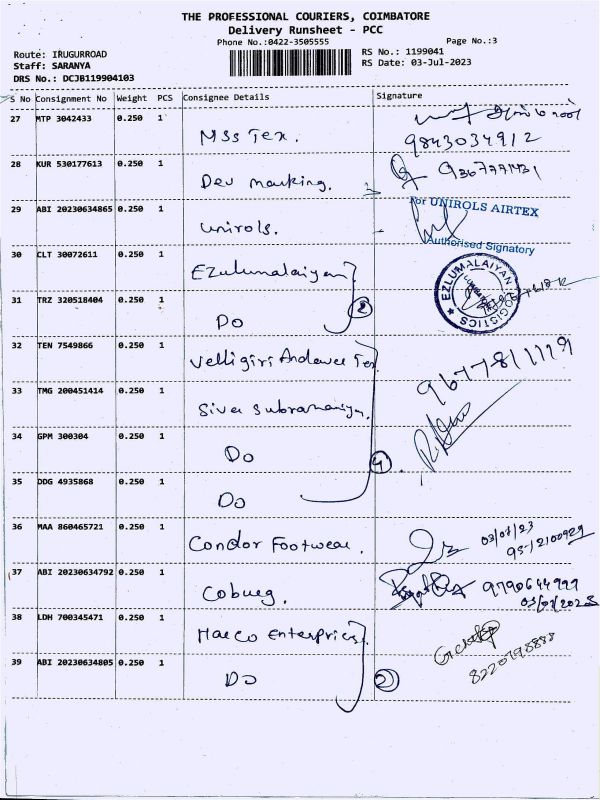 THE PROFESSIONAL COURIERS, COIMBATORE
Delivery Runsheet - PCC
Phone No.:0422-3505555
Page No.:3
Route: IRUGURROAD
RS No.: 1199041
Staff: SARANYA
RS Date: 03-Jul-2023
DRS No.: DCJB119904103
S No Consignment No Weight PCS Consignee Details Signature
27 MTP 3042433 0.250 1
Mss Tex.
9843034912
28 KUR 530177613 0.250 1
Dev marking.
29 ABI 20230634865 0.250 1
unirols.
For UNIROLS AIRTEX
Authorised Signatory
30 CLT 30072611 0.250 1
Ezulumalaiyan
EZLUMALAIYAN LOGISTICS
31 TRZ 320518404 0.250 1
Do
2
32 TEN 7549866 0.250 1
Velligiri Andavee Tex
33 TMG 200451414 0.250 1
Siva Subramaniya.
34 GPM 300304 0.250 1
Do
4
35 DDG 4935868 0.250 1
Do
36 MAA 860465721 0.250 1
Condor Footwear.
03/07/23
37 ABI 20230634792 0.250 1
Cobueg.
9790644999
03/07/2023
38 LDH 700345471 0.250 1
Haeco Enterprices
8220798888
39 ABI 20230634805 0.250 1
Do
2